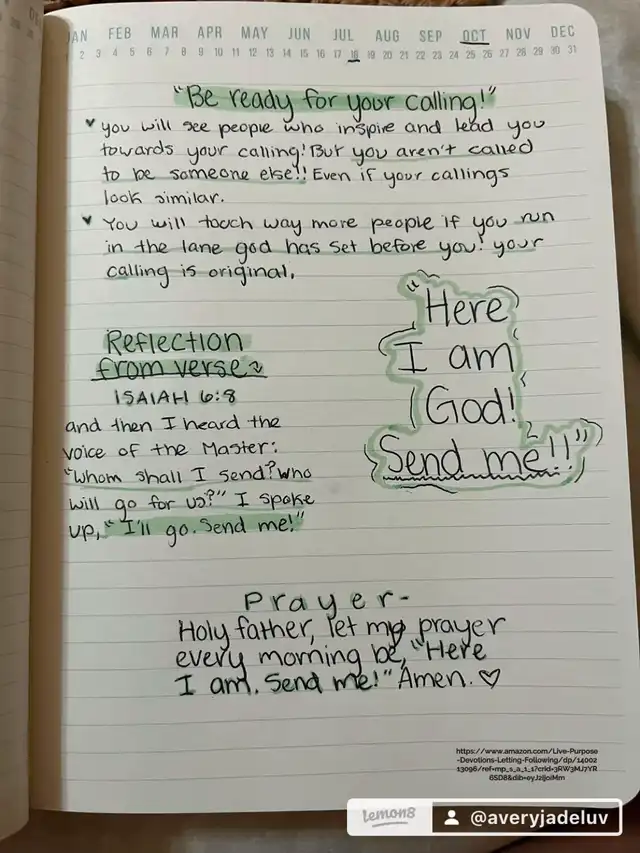 JAN FEB MAR APR MAY JUN JUL AUG SEP OCT NOV DEC
2 3 4 5 6 7 8 9 10 11 12 13 14 15 16 17 18 19 20 21 22 23 24 25 26 27 28 29 30 31
"Be ready for your calling!"
♥ you will see people who inspire and lead you
towards your calling! But you aren't called
to be someone else!! Even if your callings
look similar.
♥ You will touch way more people if you run
in the lane god has set before you! your
calling is original.
"Here
I am
God!
Send me!!"
Reflection
from verse~
ISAIAH 6:8
and then I heard the
voice of the Master:
"Whom shall I send? who
will go for us?" I spoke
up, "I'll go. Send me!"
Prayer-
Holy father, let my prayer
every morning be, "Here
I am. Send me!" Amen. ♡
https://www.amazon.com/Live-Purpose
-Devotions-Letting-Following/dp/14002
13096/ref=mp_s_a_1_1?crid=3RW3MJ7YR
6SD8&dib=eyJ2IjoiMm
lemon8 @averyjadeluv